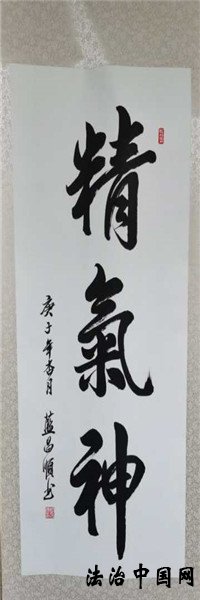 精氣神
庚子年杏月 藍昌順书
法治中国网